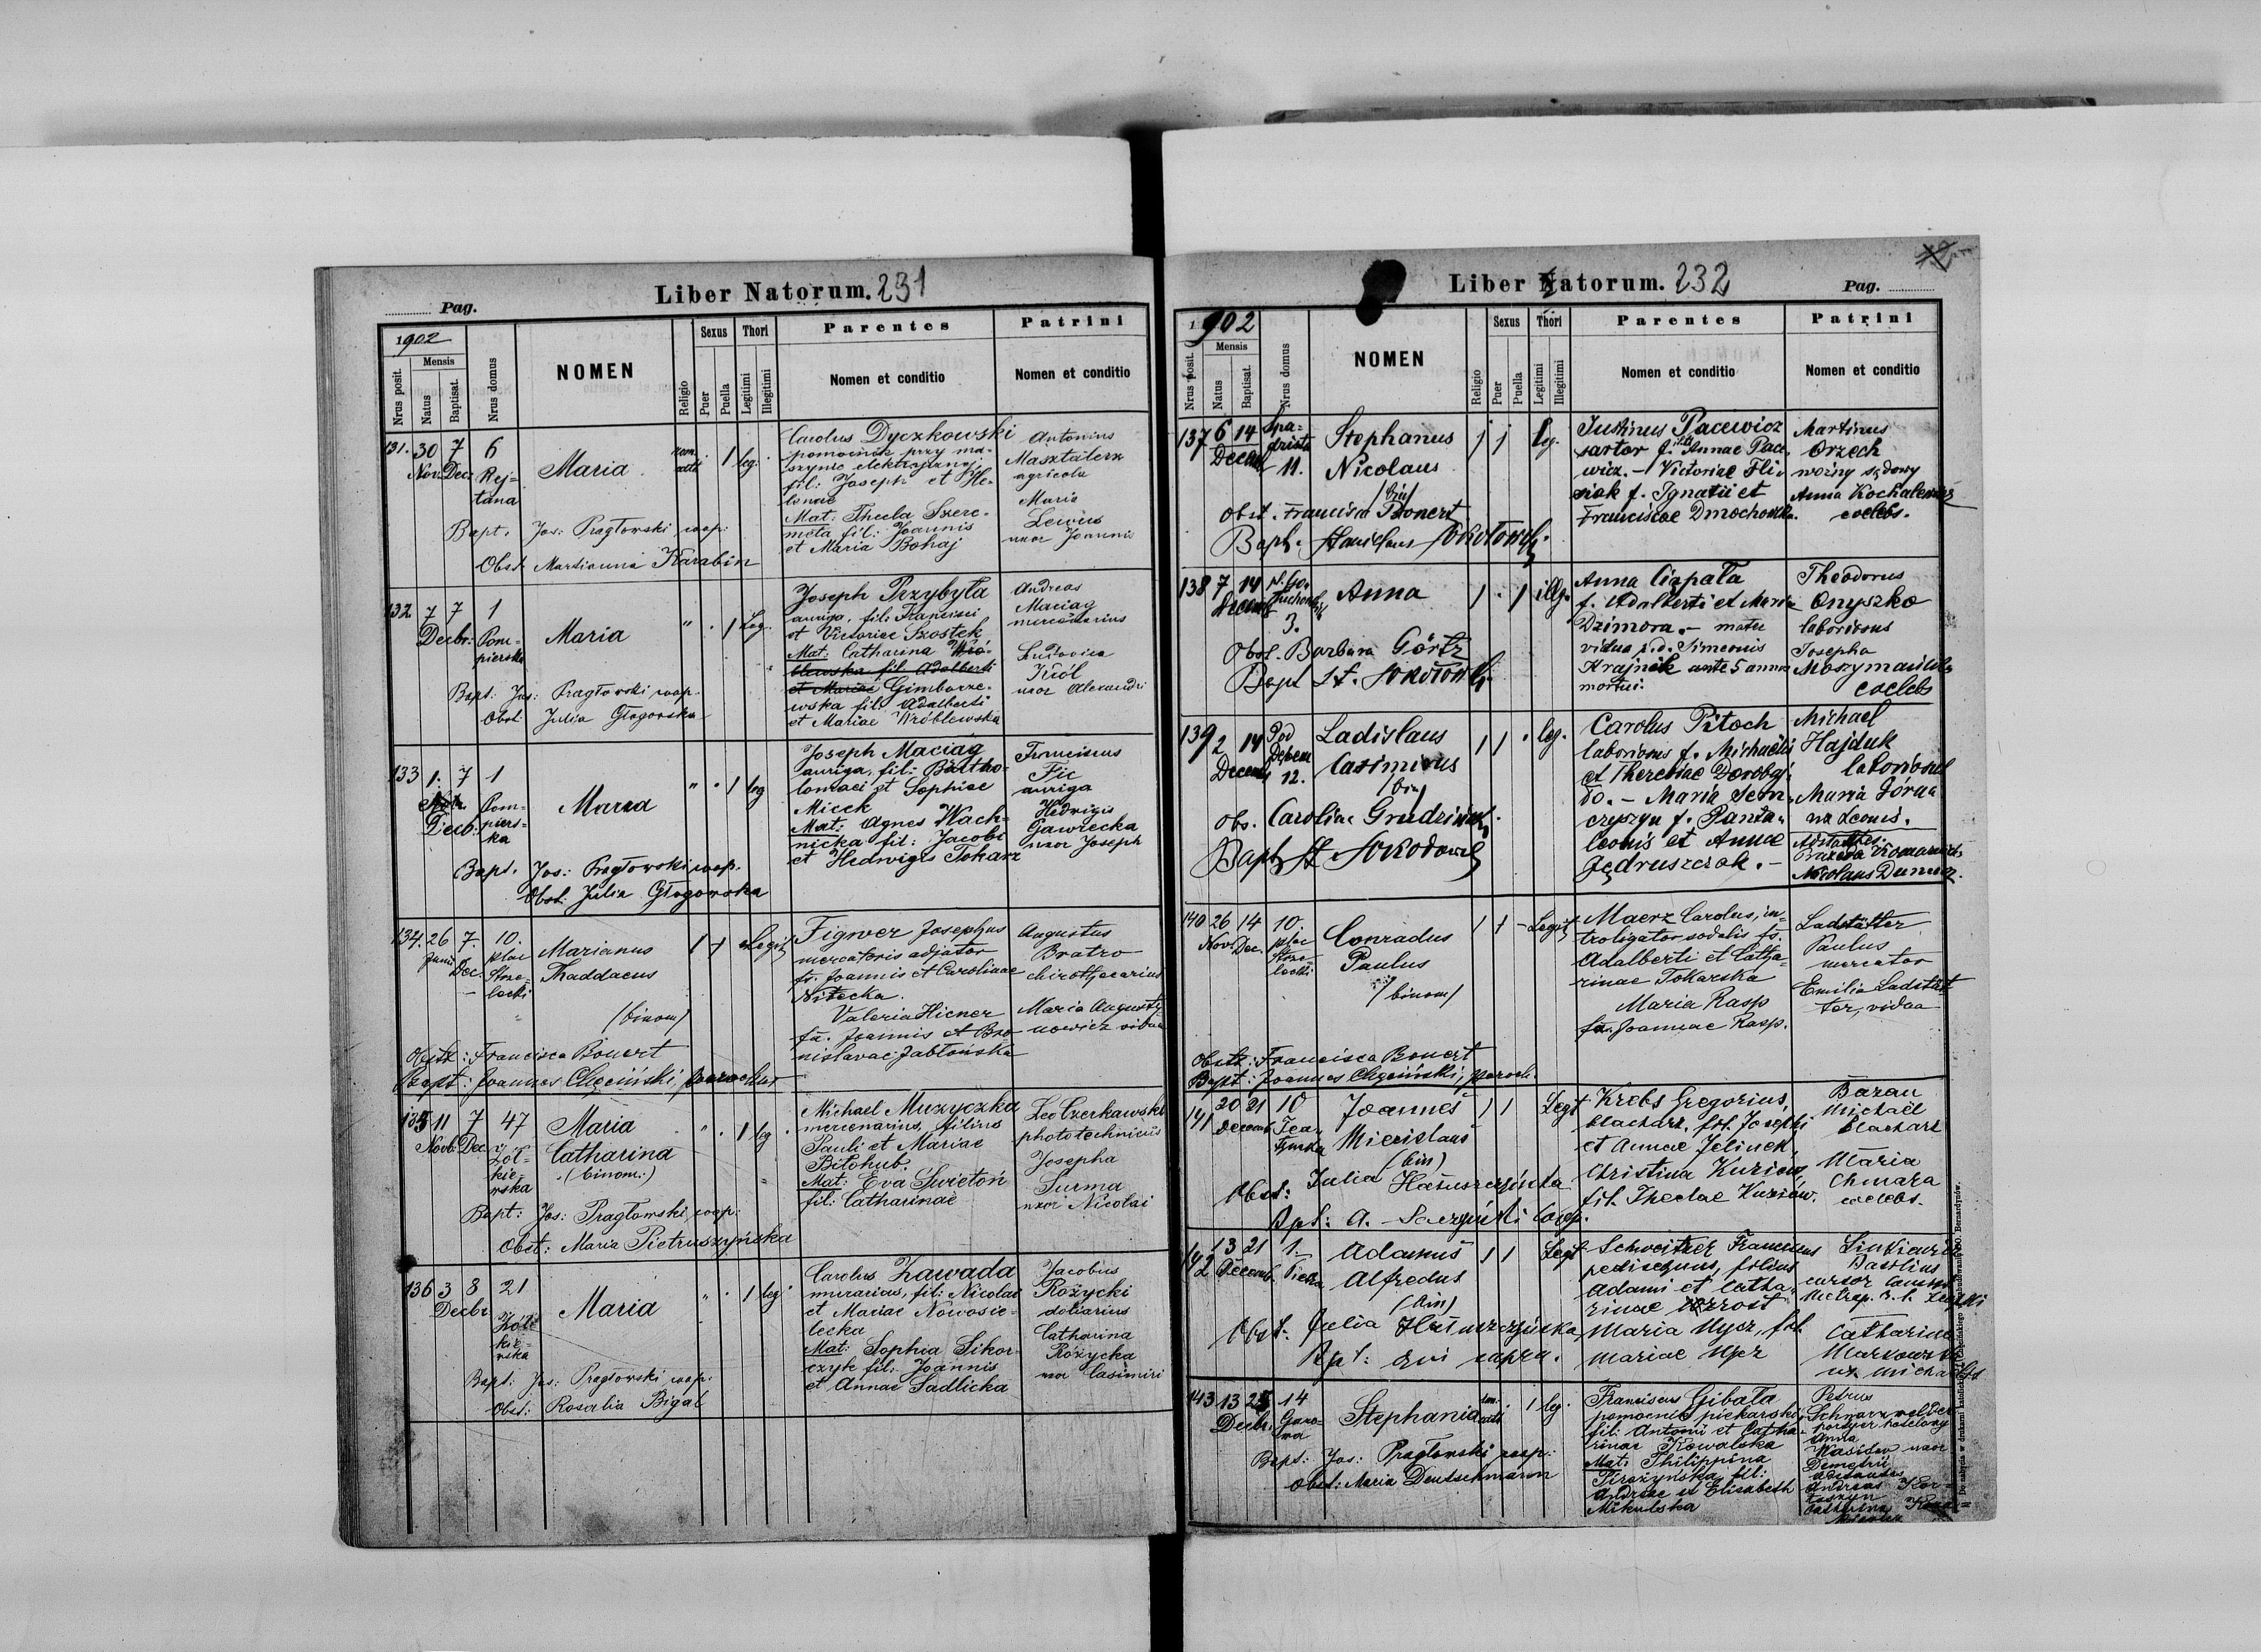 Liber Natorum. 231
Pag.
1902
Mensis
Nrus posit.
Natus
Baptisat.
Nrus domus
NOMEN
Religio
Sexus
Puer
Puella
Thori
Legitimi
Illegitimi
Parentes
Nomen et conditio
Patrini
Nomen et conditio
131. 30 7 6
Nov. Dec. Rej-
tana
Maria
rom.
1 leg.
Carolus Dyczkowski
pomocnik przy ma-
szynie elektrycznej
fil: Joseph et He-
lenae
Mat: Thecla Szere-
meta fil: Joannis
et Maria Bohaj
Antonius
Masztalerz
agricola
Maria
Lewius
uxor Joannis
Bapt. Jos: Pragłowski coop:
Obst. Marianna Karabin
132 7 7 1
Decbr: Pom-
pierska
Maria
" 1 Leg.
Joseph Przybyła
auriga, fil: Francisci
et Victoriae Szostek
Mat: Catharina Wró-
blewska fil. Adalberti
et Mariae Gimborze-
wska fil: Adalberti
et Mariae Wróblewska
Andreas
Maciag
mercenarius
Ludovica
Król
uxor Alexandri
Bapt: Jos: Pragłowski coop.
Obst: Julia Głogorska
133 1. 7 1
Decb: Pom-
piers-
ka
Maria
" 1 leg
Joseph Maciag
auriga, fil: Bartho-
lomaei et Sophiae
Micek
Mat: Agnes Wach-
nicka fil: Jacobi
et Hedwigis Tokarz
Franciscus
Fic
auriga
Hedwigis
Gawrecka
uxor Joseph
Bapt. Jos: Pragłowski coop.
Obst: Julia Głogowska
134. 26 7. 10.
Junii Dec. plac
Strze-
lecki
Marianus
Thaddaeus
(binom)
1 Legit
Figwer Josephus
mercatoris adjutor
fs. Joannis et Carolinae
Nitecka.
Valeria Hicner
fa. Joannis et Bro-
nislavae Jabłońska
Augustus
Bratro
chirothecarius
Maria Augusty-
nowicz vidua
Obstr: Francisca Bonert
Bapt: Joannes Chęciński, parochus
135 11 7 47
Novb. Dec. Żół-
kie-
wska
Maria
Catharina
(binom.)
1 leg
Michael Muzyczka
mercenarius, filius
Pauli et Mariae
Bitohub.
Mat: Eva Swietoń
fil: Catharinae
Leo Czerkawski
phototechnicus
Josepha
Surma
uxor Nicolai
Bapt: Jos: Pragłowski coop:
Obst: Maria Pietruszyńska
136 3 8 21
Decbr Żół-
kie-
wska
Maria
" 1 leg
Carolus Zawada
murarius, fil: Nicolai
et Mariae Nowosie-
lecka
Mat: Sophia Sikor-
czyk fil: Joannis
et Annae Sadlicka
Jacobus
Różycki
doliarius
Catharina
Różycka
uxor Casimiri
Bapt: Jos: Pragłowski coop.
Obst: Rosalia Bigal
Liber Natorum. 232
Pag.
1902
Mensis
Nrus posit.
Natus
Baptisat.
Nrus domus
NOMEN
Religio
Sexus
Puer
Puella
Thori
Legitimi
Illegitimi
Parentes
Nomen et conditio
Patrini
Nomen et conditio
137 6 14
Decemb
11.
Stephanus
Nicolaus
(bin)
leg.
Justinus Pacewicz
sartor f. Annae Pace-
wicz. – Victoriae Fli-
siak f. Ignatii et
Franciscae Dmochowska.
Martinus
Orzech
woźny sądowy
Anna Kochalewicz
coelebs.
Obst. Francisca Bonert
Bapt. Stanislaus Sokołowski.
138 7 14
Decemb
3.
Anna
1 . 1 illg.
Anna Ciąpała
f. Adalberti et Maria
Dzimora. – mater
vidua p.d. Simeonis
Krajnik ante 5 annos
mortui.
Theodorus
Onyszko
laboriosus
Josepha
coelebs
Obst. Barbara Görtz
Bapt St. Sokołowski.
139 2 14
Decemb
Pod
Dębem
12.
Ladislaus
Casimirus
(bin)
1 1 . leg.
Carolus Pitoch
laboriosus f. Michaelis
et Theresiae
Maria Sem-
czyszyn f. Panta-
leonis et Annae
Jędruszczak. –
Michael
Hajduk
laboriosus
Maria Górna
na Leonis.
Adstantes:
Nicolaus
obs. Carolina
Bapt St Sokołowski
140 26 14 10.
Nov. Dec. plac
Strze-
lecki
Conradus
Paulus
(binom)
1 1 - Legit
Maerz Carolus, in-
troligator sodalis fs.
Adalberti et Catha-
rinae Tokarska
Maria Rasp
fa. Joannae Rasp.
Ladstätter
Paulus
mercator
Emilia Ladstät-
ter, vidua
Obstr: Francisca Bonert
Bapt: Joannes Chęciński, paroch.
141 20 21 10
Decemb. Tea-
tynska
Joannes
Miecislaus
(bin)
1 1 Legt
Krebs Gregorius,
blacharz, fil. Josephi
et Annae Jelinek,
Christina Kuziów,
fil. Theclae Kuziów.
Baran
Michael
blacharz
Maria
Chmara
coelebs.
Obst: Julia Hałuszczyńska
Bpt: A. Coop.
142 13 21 1.
Decemb.
Adamus
Alfredus
(bin)
1 1 Legt
Schweitzer Franciscus
pedisequus, filius
Adami et Catha-
rinae
Maria Mycz, fil.
Mariae Mycz
Basilius
cursor
Catharina
ux. Michaelis
Obst: Julia Hałuszczyńska,
Bpt: qui supra.
143 13 25 14
Decbr. Gazo-
wa
Stephania
1 leg.
Franciscus Gibała
pomocnik piekarski
fil: Antonii et Catha-
rinae Kowalska
Mat: Philippina
fil:
Andreae et Elisabeth
Mikulska
Petrus
Schwarzwelder
Anna
uxor
Demetrii
adstantes
Andreas
Bapt: Jos: Pragłowski coop:
Obst: Maria Deutschmann